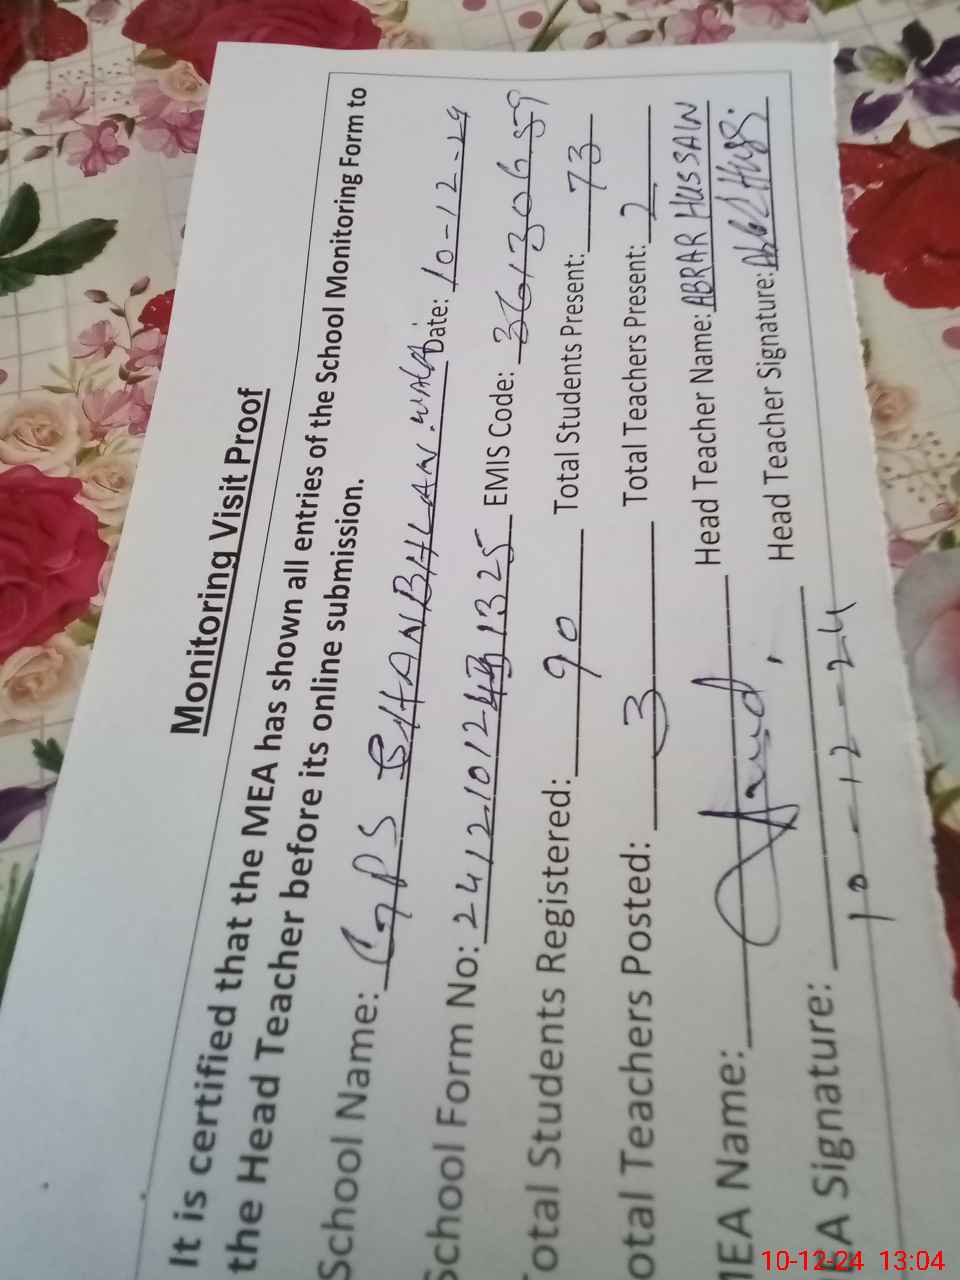 Monitoring Visit Proof
It is certified that the MEA has shown all entries of the School Monitoring Form to
the Head Teacher before its online submission.
School Name: GPS SHANBHLAN.WALA Date: 10-12-24
School Form No: 241210124 1325 EMIS Code:
otal Students Registered: 90 Total Students Present: 73
otal Teachers Posted: 3 Total Teachers Present: 2
MEA Name: Head Teacher Name: ABRAR HUSSAIN
EA Signature: Head Teacher Signature:
10-12-24
10-12-24 13:04